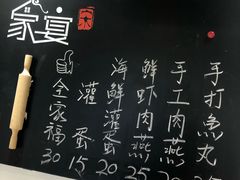 家宴
手打魚丸
手工肉燕
鮮虾肉燕 25
海鮮灌蛋 20
灌蛋 15
全家福 30